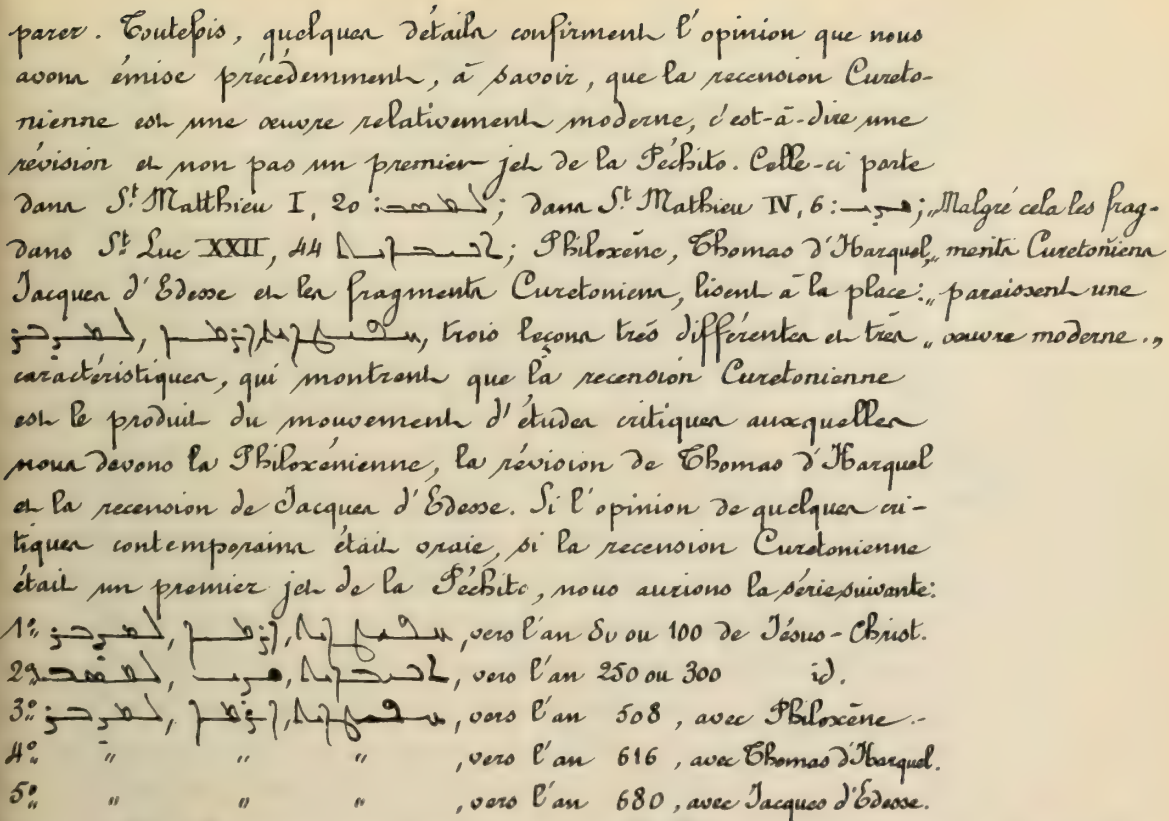 parer. Toutefois, quelques détails confirment l'opinion que nous
avons émise précédemment, à savoir, que la recension Cureto-
nienne est une œuvre relativement moderne, c'est-à-dire une
révision et non pas un premier jet de la Péchito. Celle-ci porte
dans St Matthieu I, 20 : ; dans St Mathieu IV, 6 : ; „Malgré cela les frag-
dans St Luc XXII, 44 ; Philoxène, Thomas d'Harquel, „ments Curetoniens
Jacques d'Edesse et les fragments Curetoniens, lisent à la place: „paraissent une
, , , trois leçons très différentes et très „œuvre moderne.„
caractéristiques, qui montrent que la recension Curetonienne
est le produit du mouvement d'études critiques auxquelles
nous devons la Philoxénienne, la révision de Thomas d'Harquel
et la recension de Jacques d'Edesse. Si l'opinion de quelques cri-
tiques contemporains était vraie, si la recension Curetonienne
était un premier jet de la Péchito, nous aurions la série suivante:
1º , , , vers l'an 80 ou 100 de Jésus-Christ.
2º , , , vers l'an 250 ou 300 id.
3º , , , vers l'an 508, avec Philoxène.-
4º " " " , vers l'an 616, avec Thomas d'Harquel.
5º " " " , vers l'an 680, avec Jacques d'Edesse.